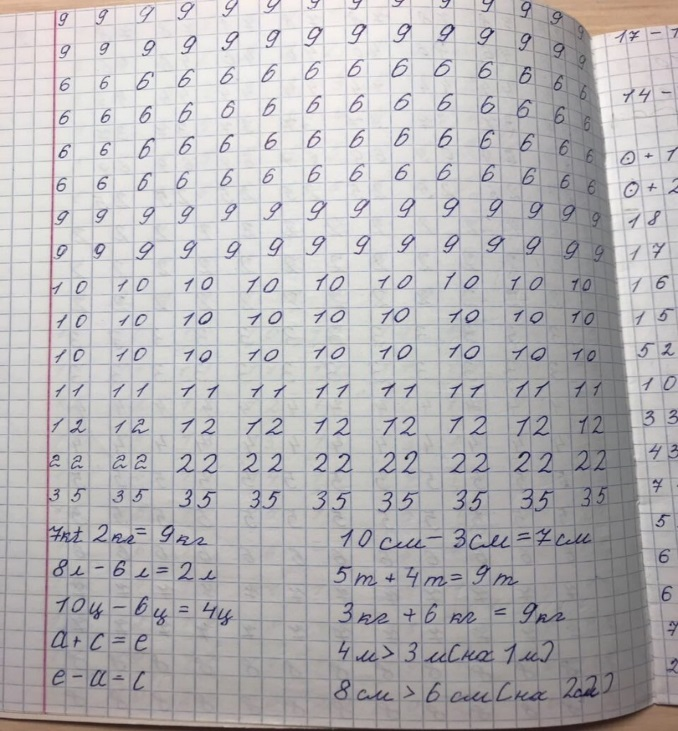 9 9 9 9 9 9 9 9 9 9 9 9 9 9
9 9 9 9 9 9 9 9 9 9 9 9 9 9
6 6 6 6 6 6 6 6 6 6 6 6 6 6
6 6 6 6 6 6 6 6 6 6 6 6 6 6
6 6 6 6 6 6 6 6 6 6 6 6 6 6
6 6 6 6 6 6 6 6 6 6 6 6 6 6
9 9 9 9 9 9 9 9 9 9 9 9 9 9
9 9 9 9 9 9 9 9 9 9 9 9 9 9
10 10 10 10 10 10 10 10 10
10 10 10 10 10 10 10 10 10
10 10 10 10 10 10 10 10 10
11 11 11 11 11 11 11 11 11
12 12 12 12 12 12 12 12 12
22 22 22 22 22 22 22 22 22
35 35 35 35 35 35 35 35 35
7кг+ 2кг = 9кг
8л - 6л = 2л
10ц - 6ц = 4ц
а + с = е
е - а = с
10см - 3см = 7см
5т + 4т = 9т
3кг + 6кг = 9кг
4м > 3м (на 1м)
8см > 6см (на 2см)
17 -
14 -
0 + 1
0 + 2
18
17
16
15
52
10
33
43
7
5
6
6
7
2